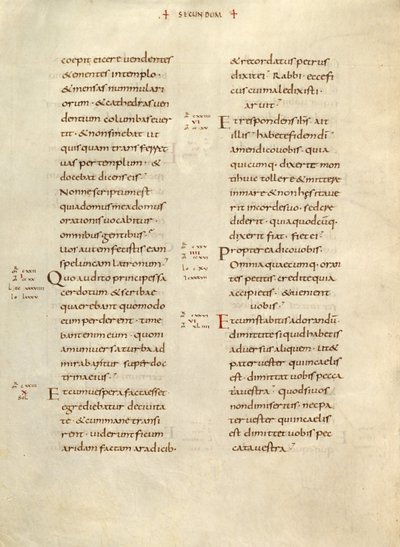 SECUNDUM
coepit eicere vendentes
& ementes in templo ·
& mensas nummulari
orum · & cathedras ven
dentium columbas ever
tit · & non sinebat ut
quisquam transferret
vas per templum · &
docebat dicens eis ·
Nonne scriptum est
quia domus mea domus
orationis vocabitur
omnibus gentibus ·
vos autem fecistis eam
speluncam latronum ·
Quo audito principes sa
cerdotum & scribae
quaerebant quomodo
eum perderent · time
bant enim eum · quoni
am universa turba ad
mirabatur super doc
trina eius ·
Et cum vespera facta esset
egrediebatur de civita
te · & cum mane transi
rent · viderunt ficum
aridam factam a radicib·
& recordatus petrus
dixit ei · Rabbi · ecce fi
cus cui maledixisti ·
aruit ·
Et respondens ihs ait
illis · habete fidem di
amen dico vobis · quia
quicumq: dixerit mon
ti huic tollere & mittere
in mare & non hesitave
rit in corde suo · sed cre
diderit · quia quodcũq:
dixerit fiat · fiet ei ·
Propterea dico vobis ·
Omnia quaecumq: oran
tes petitis credite quia
accipietis · & evenient
vobis ·
Et cum stabitis ad orandũ ·
dimittite si quid habetis
adversus aliquem · ut &
pater vester qui in caelis
est · dimittat vobis pecca
ta vestra · quod si vos
non dimiseritis · nec pa
ter vester qui in caelis
est dimittet vobis pec
cata vestra ·